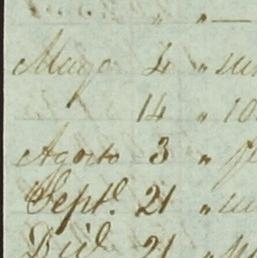 " " —
Mayo 4 "
14 " 10
Agosto 3 "
Septe. 21 "
Dice. 21 "